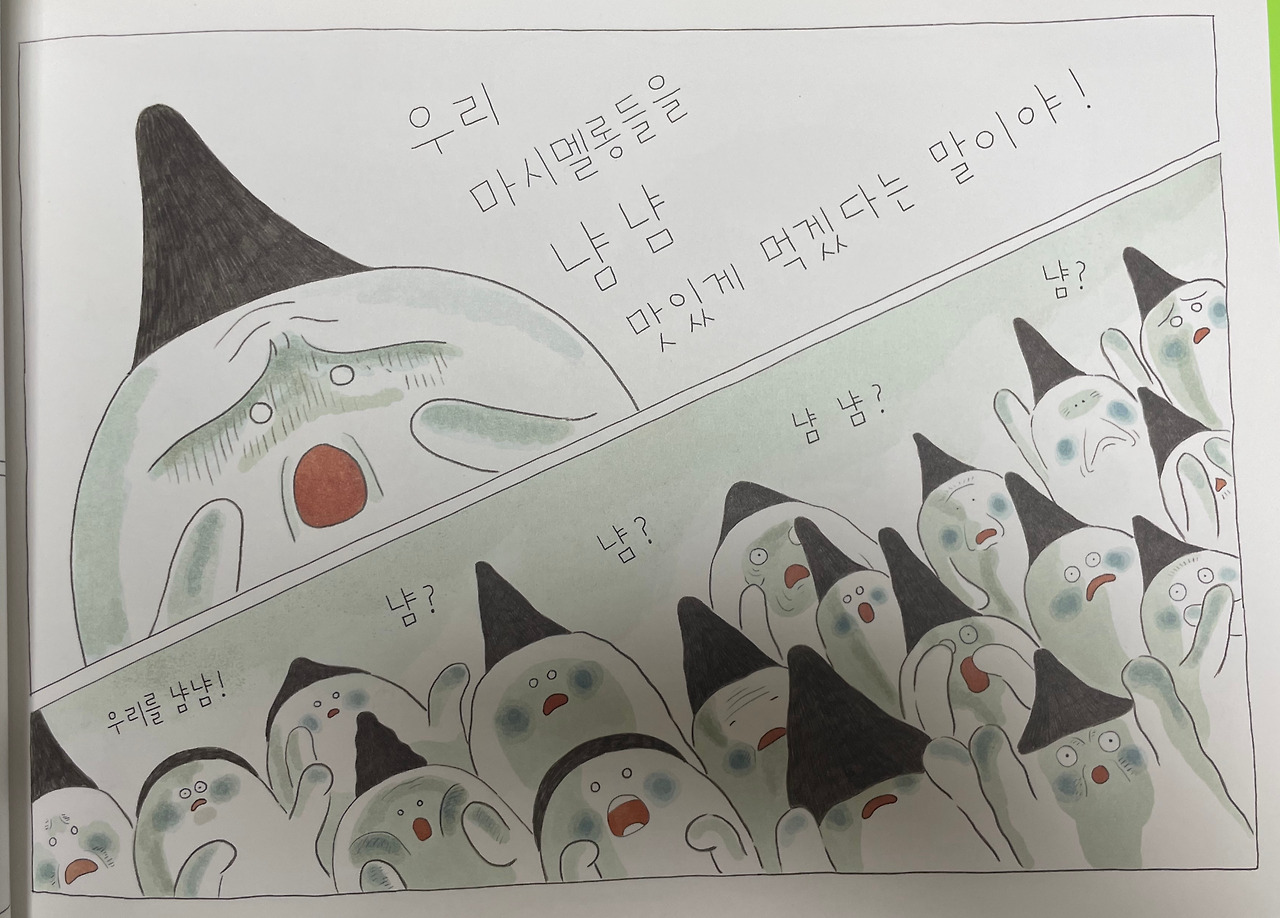 우리
마시멜롱들을
냠 냠
맛있게 먹겠다는 말이야!
냠?
냠 냠?
냠?
냠?
우리를 냠냠!